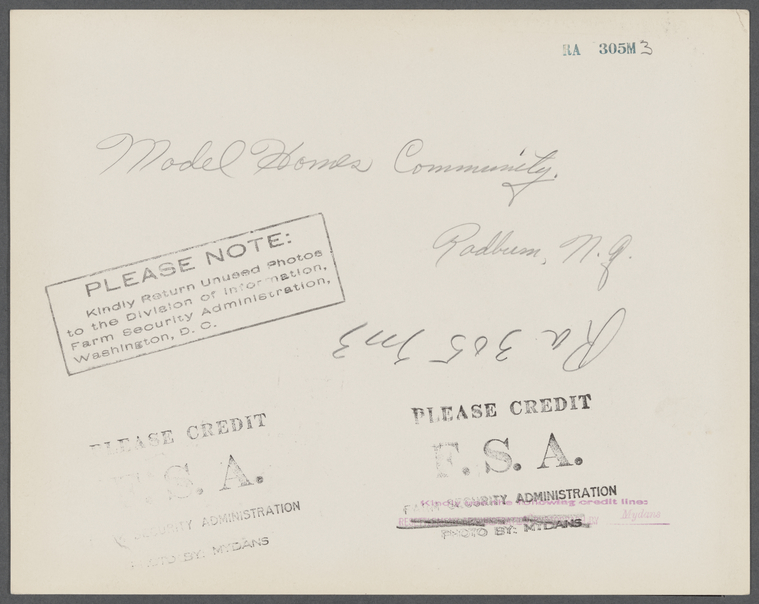 RA 305M3
Model Homes Community.
Radburn, N.J.
PLEASE NOTE:
Kindly Return Unused Photos
to the Division of Information,
Farm Security Administration,
Washington, D. C.
Ra 305 M3
PLEASE CREDIT
F.S.A.
SECURITY ADMINISTRATION
PHOTO BY: MYDANS
PLEASE CREDIT
F.S.A.
FARM SECURITY ADMINISTRATION
Kindly use the following credit line:
Mydans
PHOTO BY: MYDANS